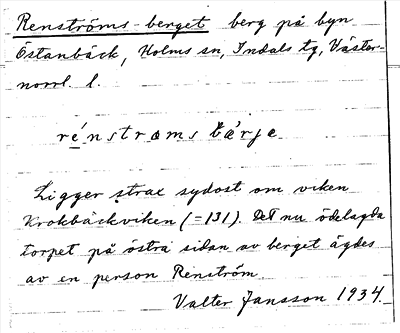 Renströms-berget berg på byn
Östanbäck, Holms sn, Indals tg, Väster-
norrl. l.
rénstrœms bǽrje
Ligger strax sydost om viken
Krokbäckviken (=131). Det nu ödelagda
torpet på östra sidan av berget ägdes
av en person Renström
Valter Jansson 1934.